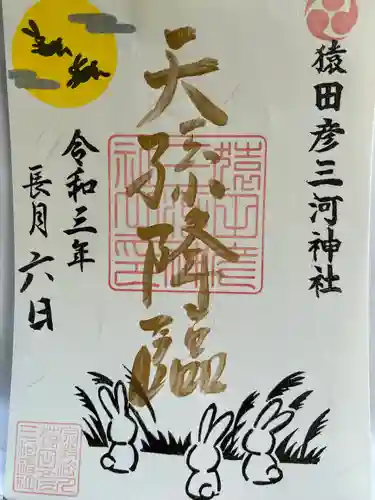 猿田彦三河神社
天孫降臨
令和三年
長月六日